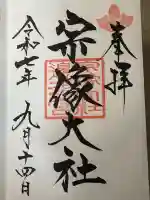 奉拝
宗像大社
令和七年 九月十四日